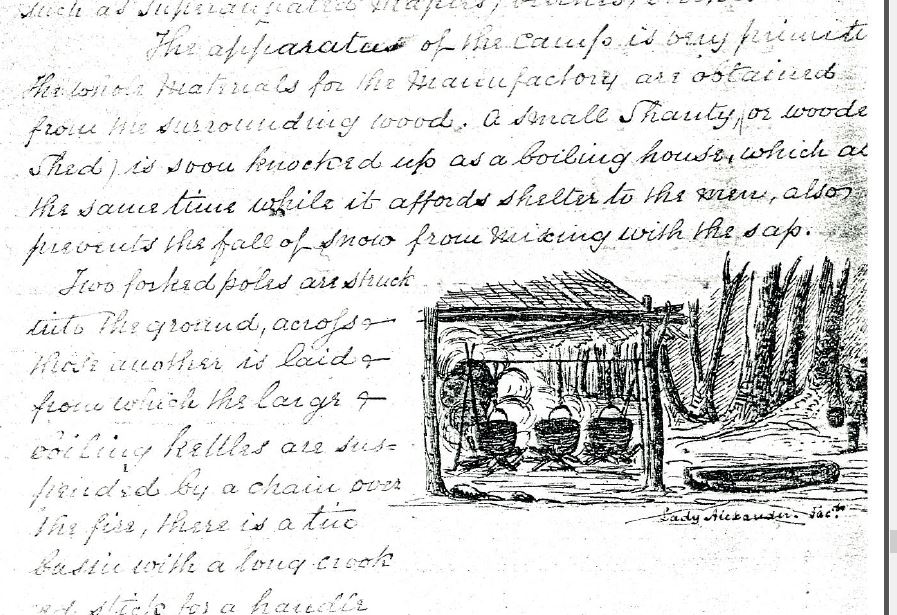 such as superannuated Maples,
The apparatus of the camp is very primiti
the whole Materials for the Manufactory are obtained
from the surrounding wood. A small Shanty, (or woode
Shed) is soon knocked up as a boiling house, which at
the same time while it affords shelter to the men, also
prevents the fall of snow from mixing with the sap.
Two forked poles are struck
into the ground, across &
these another is laid &
from which the large &
boiling kettles are sus=
pended by a chain over
the fire, there is a tin
basin with a long crook
ed stick for a handle
Lady Alexander. Fact.